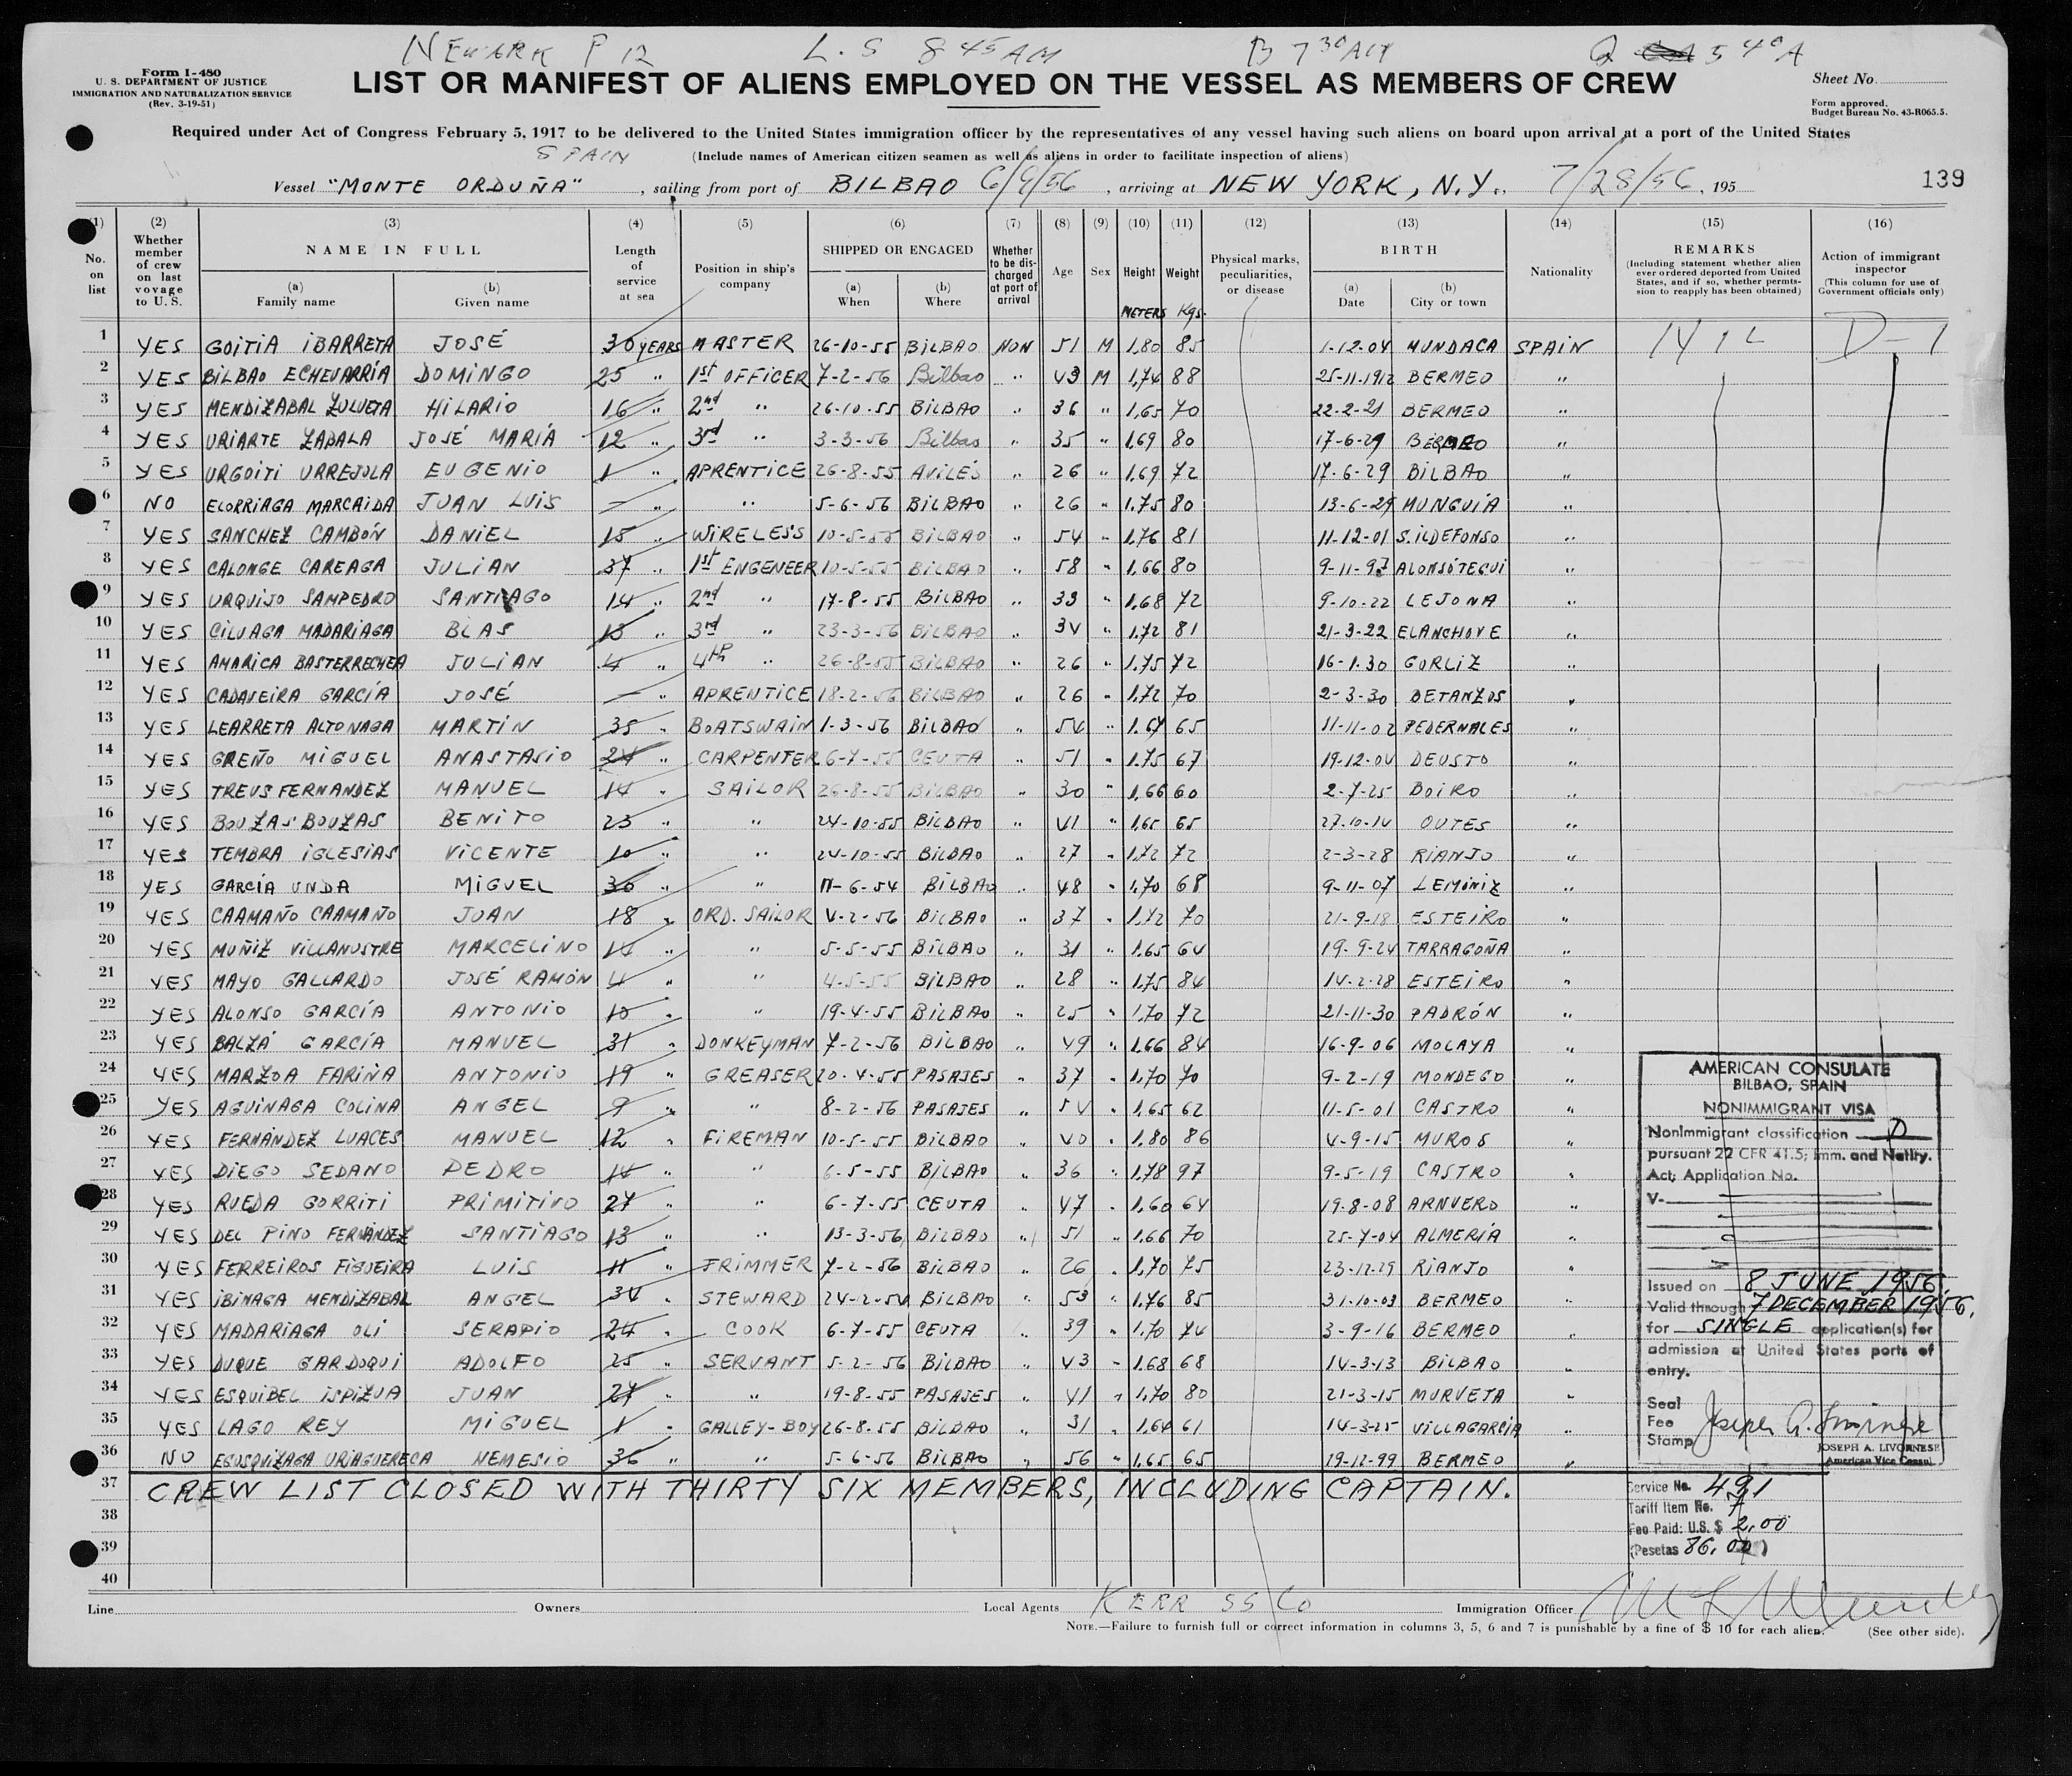 NEWARK P 12 L. S 8 45 AM B 7 30 AM Q 5 40 A
Form I-480
U. S. DEPARTMENT OF JUSTICE
IMMIGRATION AND NATURALIZATION SERVICE
(Rev. 3-19-51)
LIST OR MANIFEST OF ALIENS EMPLOYED ON THE VESSEL AS MEMBERS OF CREW
Sheet No.
Form approved.
Budget Bureau No. 43-R065.5.
Required under Act of Congress February 5, 1917 to be delivered to the United States immigration officer by the representatives of any vessel having such aliens on board upon arrival at a port of the United States
SPAIN (Include names of American citizen seamen as well as aliens in order to facilitate inspection of aliens)
Vessel "MONTE ORDUÑA", sailing from port of BILBAO 6/9/56, arriving at NEW YORK, N.Y., 7/28/56, 195
139
(1) No. on list
(2) Whether member of crew on last voyage to U. S.
(3) NAME IN FULL (a) Family name (b) Given name
(4) Length of service at sea
(5) Position in ship's company
(6) SHIPPED OR ENGAGED (a) When (b) Where
(7) Whether to be discharged at port of arrival
(8) Age
(9) Sex
(10) Height METERS
(11) Weight Kgs.
(12) Physical marks, peculiarities, or disease
(13) BIRTH (a) Date (b) City or town
(14) Nationality
(15) REMARKS (Including statement whether alien ever ordered deported from United States, and if so, whether permission to reapply has been obtained)
(16) Action of immigrant inspector (This column for use of Government officials only)
1 YES GOITIA IBARRETA JOSÉ 30 YEARS MASTER 26-10-55 BILBAO NON 51 M 1,80 85 1-12-04 MUNDACA SPAIN D-1
2 YES BILBAO ECHEVARRIA DOMINGO 25 " 1st OFFICER 7-2-56 Bilbao " 43 M 1,74 88 25-11-1912 BERMEO "
3 YES MENDIZABAL ZULUETA HILARIO 16 " 2nd " 26-10-55 BILBAO " 36 " 1,65 70 22-2-21 BERMEO "
4 YES URIARTE ZABALA JOSÉ MARIÁ 12 " 3rd " 3-3-56 Bilbao " 35 " 1,69 80 17-6-29 BERMEO "
5 YES URGOITI URREJOLA EUGENIO 1 " APRENTICE 26-8-55 AVILÉS " 26 " 1,69 72 17-6-29 BILBAO "
6 NO ELORRIAGA MARCAIDA JUAN LUIS — " " 5-6-56 BILBAO " 26 " 1.75 80 13-6-29 MUNGUÍA "
7 YES SANCHEZ CAMBÓN DANIEL 15 " WIRELESS 10-5-55 BILBAO " 54 " 1,76 81 11-12-01 S. ILDEFONSO "
8 YES CALONGE CAREAGA JULIAN 37 " 1st ENGENEER 10-5-55 BILBAO " 58 " 1,66 80 9-11-97 ALONSÓTEGUI "
9 YES URQUIJO SAMPEDRO SANTIAGO 14 " 2nd " 17-8-55 BILBAO " 33 " 1,68 72 9-10-22 LEJONA "
10 YES CILUAGA MADARIAGA BLAS 13 " 3rd " 23-3-56 BILBAO " 34 " 1,72 81 21-3-22 ELANCHOVE "
11 YES AMARICA BASTERRECHEA JULIAN 4 " 4th " 26-8-55 BILBAO " 26 " 1.75 72 16-1-30 GORLIZ "
12 YES CADAVEIRA GARCÍA JOSÉ — " APRENTICE 18-2-56 BILBAO " 26 " 1,72 70 2-3-30 BETANZOS "
13 YES LEARRETA ALTONAGA MARTIN 35 " BOATSWAIN 1-3-56 BILBAO " 54 " 1.67 65 11-11-02 PEDERNALES "
14 YES GREÑO MIGUEL ANASTASIO 24 " CARPENTER 6-7-55 CEUTA " 51 " 1.75 67 19-12-04 DEUSTO "
15 YES TREUS FERNANDEZ MANUEL 14 " SAILOR 26-8-55 BILBAO " 30 " 1,66 60 2-7-25 BOIRO "
16 YES BOUZAS BOUZAS BENITO 23 " " 24-10-55 BILBAO " 41 " 1,65 65 27-10-14 OUTES "
17 YES TEMBRA IGLESIAS VICENTE 10 " " 24-10-55 BILBAO " 27 " 1,72 72 2-3-28 RIANJO "
18 YES GARCÍA UNDA MIGUEL 30 " " 11-6-54 BILBAO " 48 " 1,70 68 9-11-07 LEMONIZ "
19 YES CAAMAÑO CAAMAÑO JUAN 18 " ORD. SAILOR 4-2-56 BILBAO " 37 " 1,72 70 21-9-18 ESTEIRO "
20 YES MUÑIZ VILLANUSTRE MARCELINO 14 " " 5-5-55 BILBAO " 31 " 1.65 64 19-9-24 TARRAGOÑA "
21 YES MAYO GALLARDO JOSÉ RAMÓN 4 " " 4-5-55 BILBAO " 28 " 1.75 84 14-2-28 ESTEIRO "
22 YES ALONSO GARCÍA ANTONIO 10 " " 19-4-55 BILBAO " 25 " 1.70 72 21-11-30 PADRÓN "
23 YES BALZÁ GARCÍA MANUEL 31 " DONKEYMAN 7-2-56 BILBAO " 49 " 1.66 84 16-9-06 MOLAYA "
24 YES MARZOA FARIÑA ANTONIO 19 " GREASER 20-4-55 PASAJES " 37 " 1,70 70 9-2-19 MONDEGO "
25 YES AGUINAGA COLINA ANGEL 9 " " 8-2-56 PASAJES " 54 " 1,65 62 11-5-01 CASTRO "
26 YES FERNÁNDEZ LUACES MANUEL 12 " FIREMAN 10-5-55 BILBAO " 40 " 1,80 86 4-9-15 MUROS "
27 YES DIEGO SEDANO PEDRO 14 " " 6-5-55 BILBAO " 36 " 1,78 97 9-5-19 CASTRO "
28 YES RUEDA GORRITI PRIMITIVO 27 " " 6-7-55 CEUTA " 47 " 1,60 64 19-8-08 ARNUERO "
29 YES DEL PINO FERNÁNDEZ SANTIAGO 13 " " 13-3-56 BILBAO " 51 " 1.66 70 25-7-04 ALMERÍA "
30 YES FERREIROS FIGUEIRA LUIS 11 " TRIMMER 7-2-56 BILBAO " 26 " 1.70 75 23-12-29 RIANJO "
31 YES IBINAGA MENDIZABAL ANGEL 34 " STEWARD 24-2-54 BILBAO " 53 " 1.76 85 31-10-03 BERMEO "
32 YES MADARIAGA OLI SERAPIO 24 " COOK 6-7-55 CEUTA " 39 " 1.70 74 3-9-16 BERMEO "
33 YES DUQUE GARDOQUI ADOLFO 25 " SERVANT 5-2-56 BILBAO " 43 " 1.68 68 14-3-13 BILBAO "
34 YES ESQUIBEL ISPIZUA JUAN 27 " " 19-8-55 PASAJES " 41 " 1,70 80 21-3-15 MURUETA "
35 YES LAGO REY MIGUEL 1 " GALLEY-BOY 26-8-55 BILBAO " 31 " 1,64 61 14-3-25 VILLAGARCIA "
36 NO EGUSQUIZAGA URIAGUERECA NEMESIO 36 " " 5-6-56 BILBAO " 56 " 1.65 65 19-12-99 BERMEO "
37 CREW LIST CLOSED WITH THIRTY SIX MEMBERS, INCLUDING CAPTAIN.
38
39
40
AMERICAN CONSULATE
BILBAO, SPAIN
NONIMMIGRANT VISA
Nonimmigrant classification D
pursuant 22 CFR 41.5; Imm. and Natlty.
Act; Application No.
V-
Issued on 8 JUNE 1956
Valid through 7 DECEMBER 1956.
for SINGLE application(s) for
admission at United States ports of
entry.
Seal
Fee
Stamp
JOSEPH A. LIVORNESE
American Vice Consul
Service No. 491
Tariff Item No. 7
Fee Paid: U.S. $ 2.00
(Pesetas 86.00)
Line Owners Local Agents KERR SS Co Immigration Officer
NOTE.—Failure to furnish full or correct information in columns 3, 5, 6 and 7 is punishable by a fine of $ 10 for each alien. (See other side).